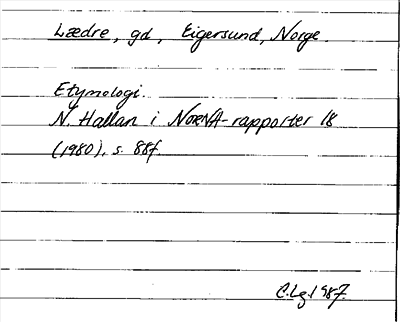 Lædre, gd, Eigersund, Norge.
Etymologi.
N. Hallan i NORNA-rapporter 18
(1980), s. 88f.
C.Lg. 1987.